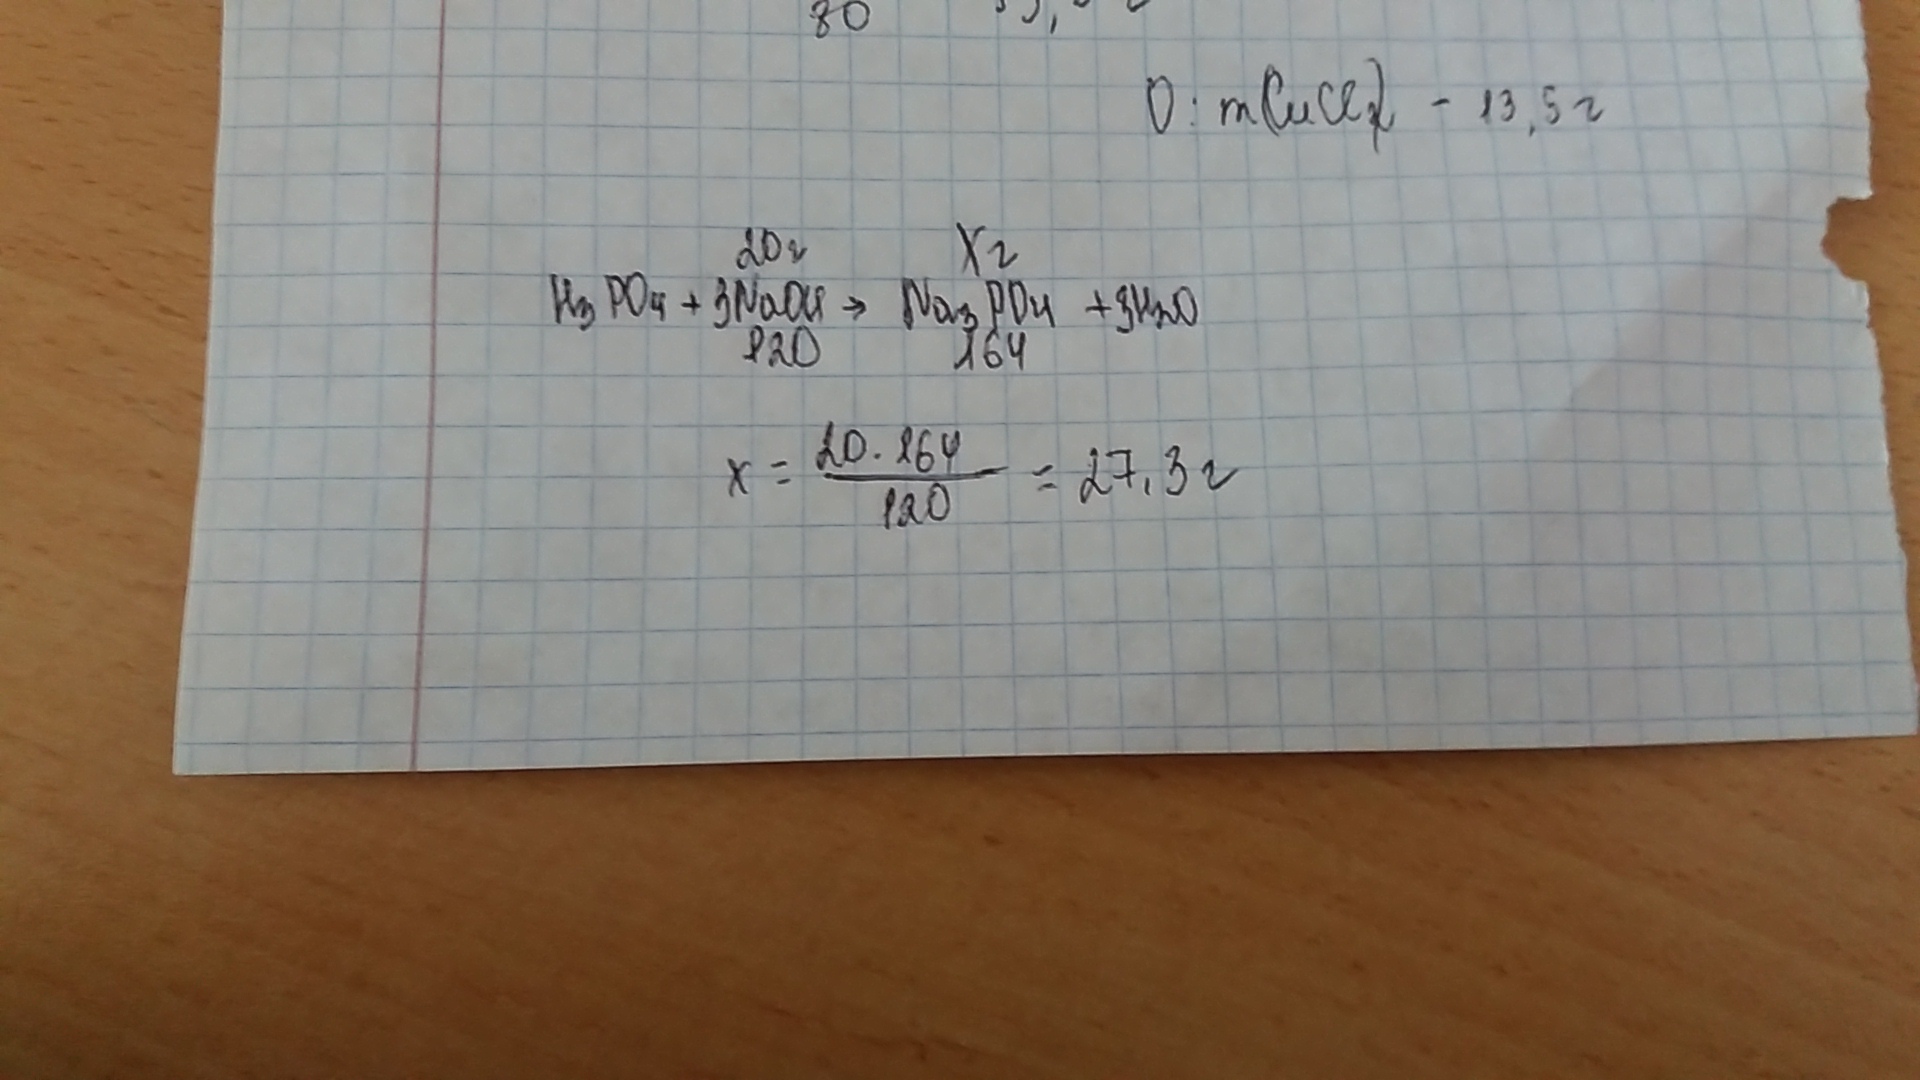 80
O: m(CuCl2) - 13,5г
20г Xг
H3PO4 + 3NaOH → Na3PO4 + 3H2O
120 164
x = 20 · 164 / 120 = 27,3г